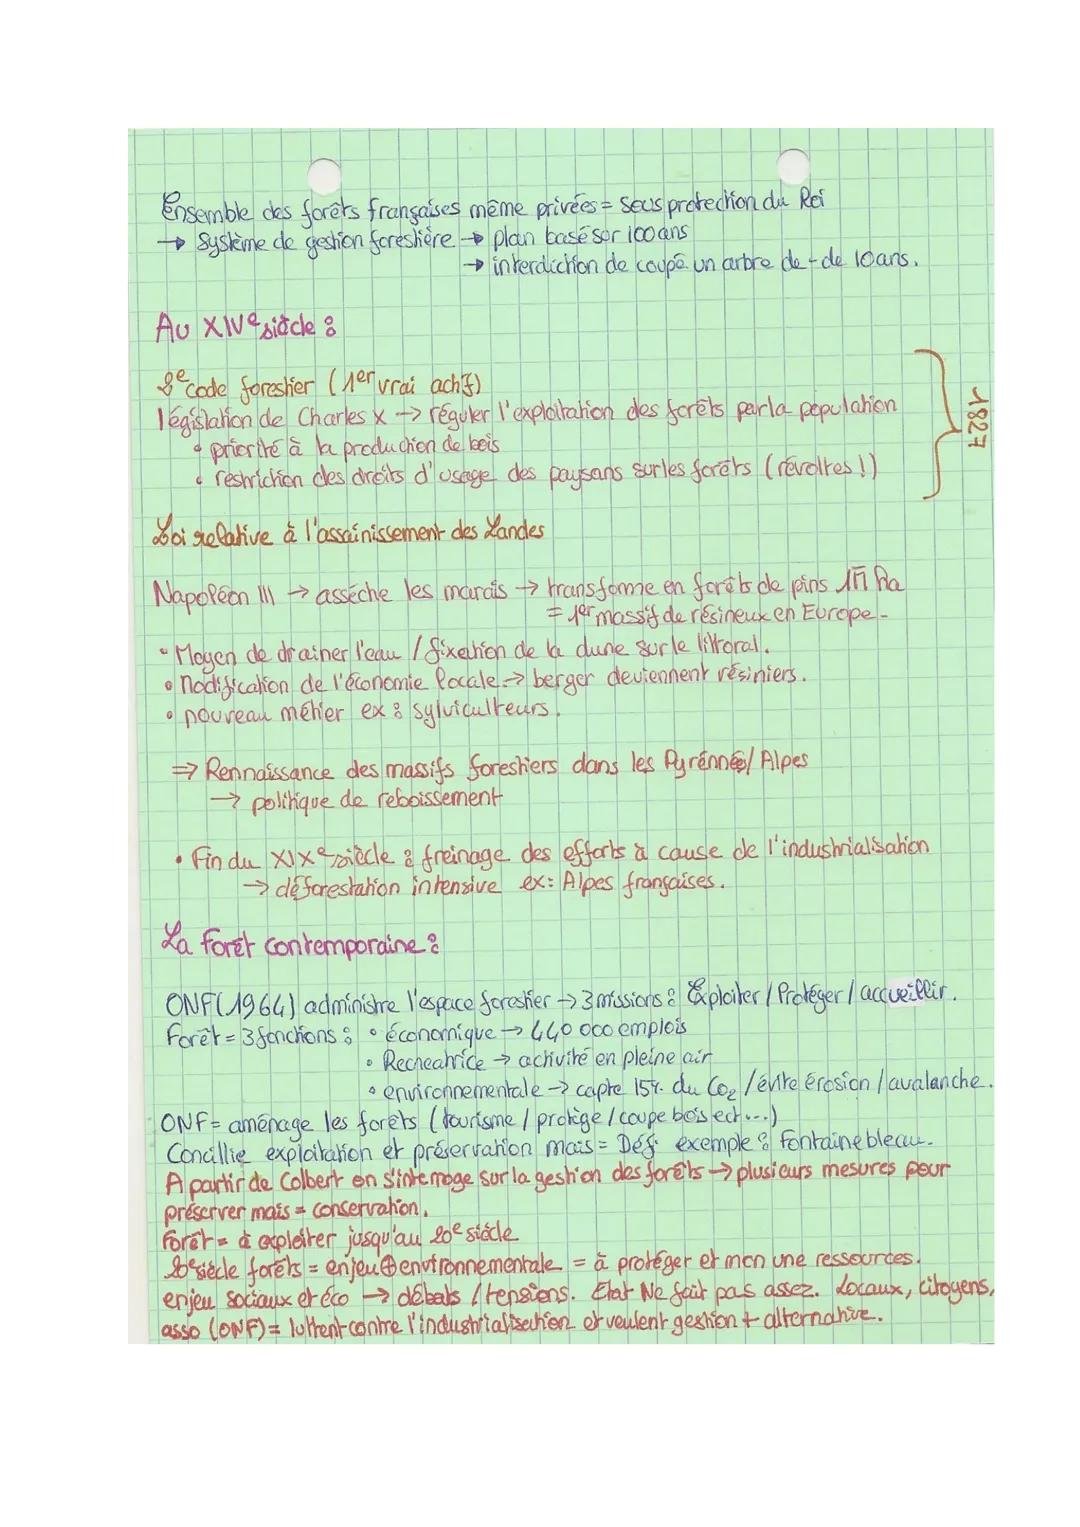 Ensemble des forêts françaises même privées = sous protection du Roi
→ Système de gestion forestière → plan basé sur 100 ans
→ interdiction de coupé un arbre de - de 10 ans.
Au XIVe siècle :
2e code forestier (1er vrai actif)
législation de Charles X → réguler l'exploitation des forêts par la population
• priorité à la production de bois
• restriction des droits d'usage des paysans sur les forêts (révoltes !)
1827
Loi relative à l'assainissement des Landes
Napoléon III → assèche les marais → transforme en forêts de pins 1M ha
= 1er massif de résineux en Europe -
• Moyen de drainer l'eau / fixation de la dune sur le littoral.
• Modification de l'économie locale → berger deviennent résiniers.
• nouveau métier ex : sylviculteurs.
⇒ Rennaissance des massifs forestiers dans les Pyrénnées / Alpes
→ politique de reboissement
• Fin du XIXe siècle : freinage des efforts à cause de l'industrialisation
→ déforestation intensive ex : Alpes françaises.
La forêt contemporaine :
ONF (1964) administre l'espace forestier → 3 missions : Exploiter / Protéger / accueillir.
Forêt = 3 fonctions : • économique → 440 000 emplois
• Recreatrice → activité en pleine air
• environnementale → capte 15% du Co2 / évite érosion / avalanche.
ONF = aménage les forêts (tourisme / protège / coupe bois ect...)
Concillie exploitation et préservation mais = Défi exemple : Fontainebleau.
A partir de Colbert on s'interroge sur la gestion des forêts → plusieurs mesures pour
préserver mais = conservation.
Forêt = à exploiter jusqu'au 20e siècle
20e siècle forêts = enjeu ⊕ environnementale = à protéger et mon une ressources.
enjeu sociaux et éco → débats / tensions. Etat Ne fait pas assez. Locaux, citoyens,
asso (ONF) = luttent contre l'industrialisation et veulent gestion + alternative.